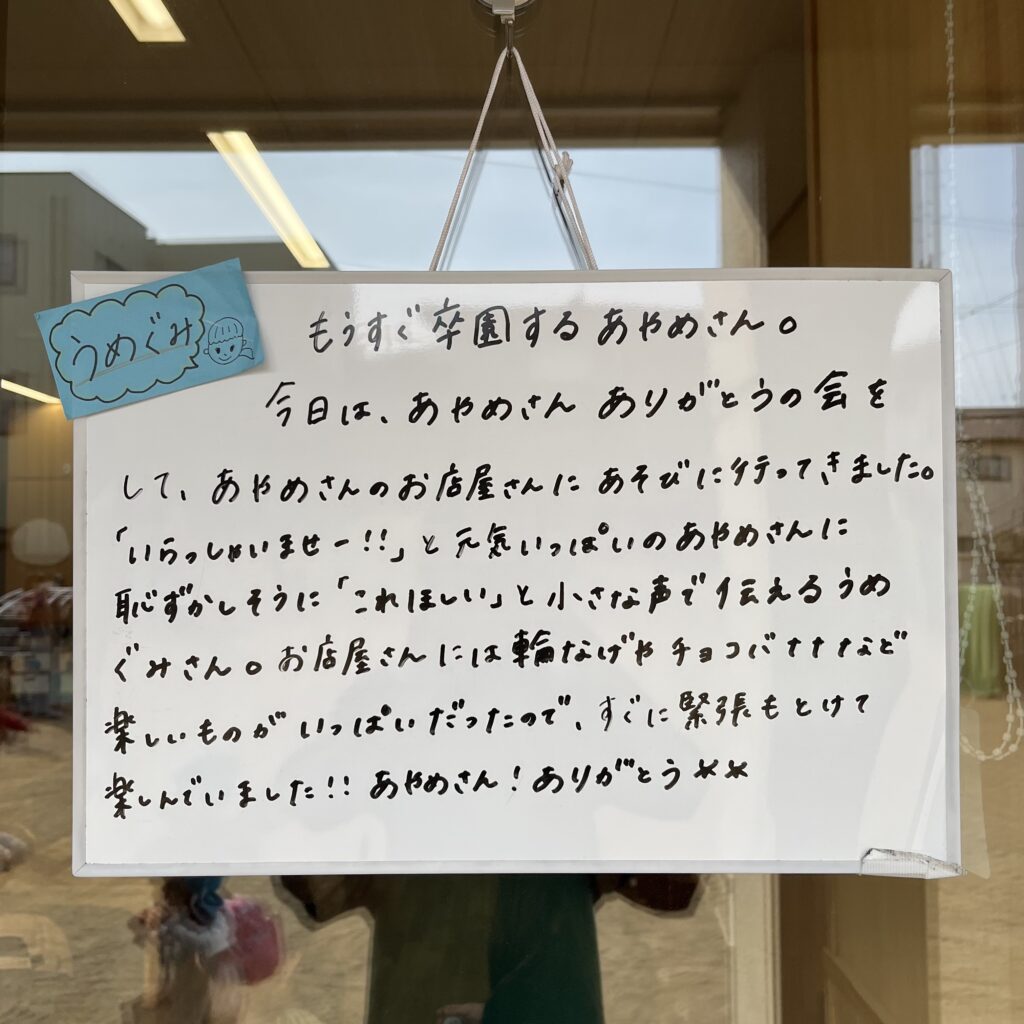 うめぐみ
もうすぐ卒園するあやめさん。
今日は、あやめさん ありがとうの会を
して、あやめさんのお店屋さんに あそびに行ってきました。
「いらっしゃいませー!!」と元気いっぱいのあやめさんに
恥ずかしそうに「これほしい」と小さな声で伝えるうめ
ぐみさん。お店屋さんには輪なげやチョコバナナなど
楽しいものがいっぱいだったので、すぐに緊張もとけて
楽しんでいました!! あやめさん!ありがとう**